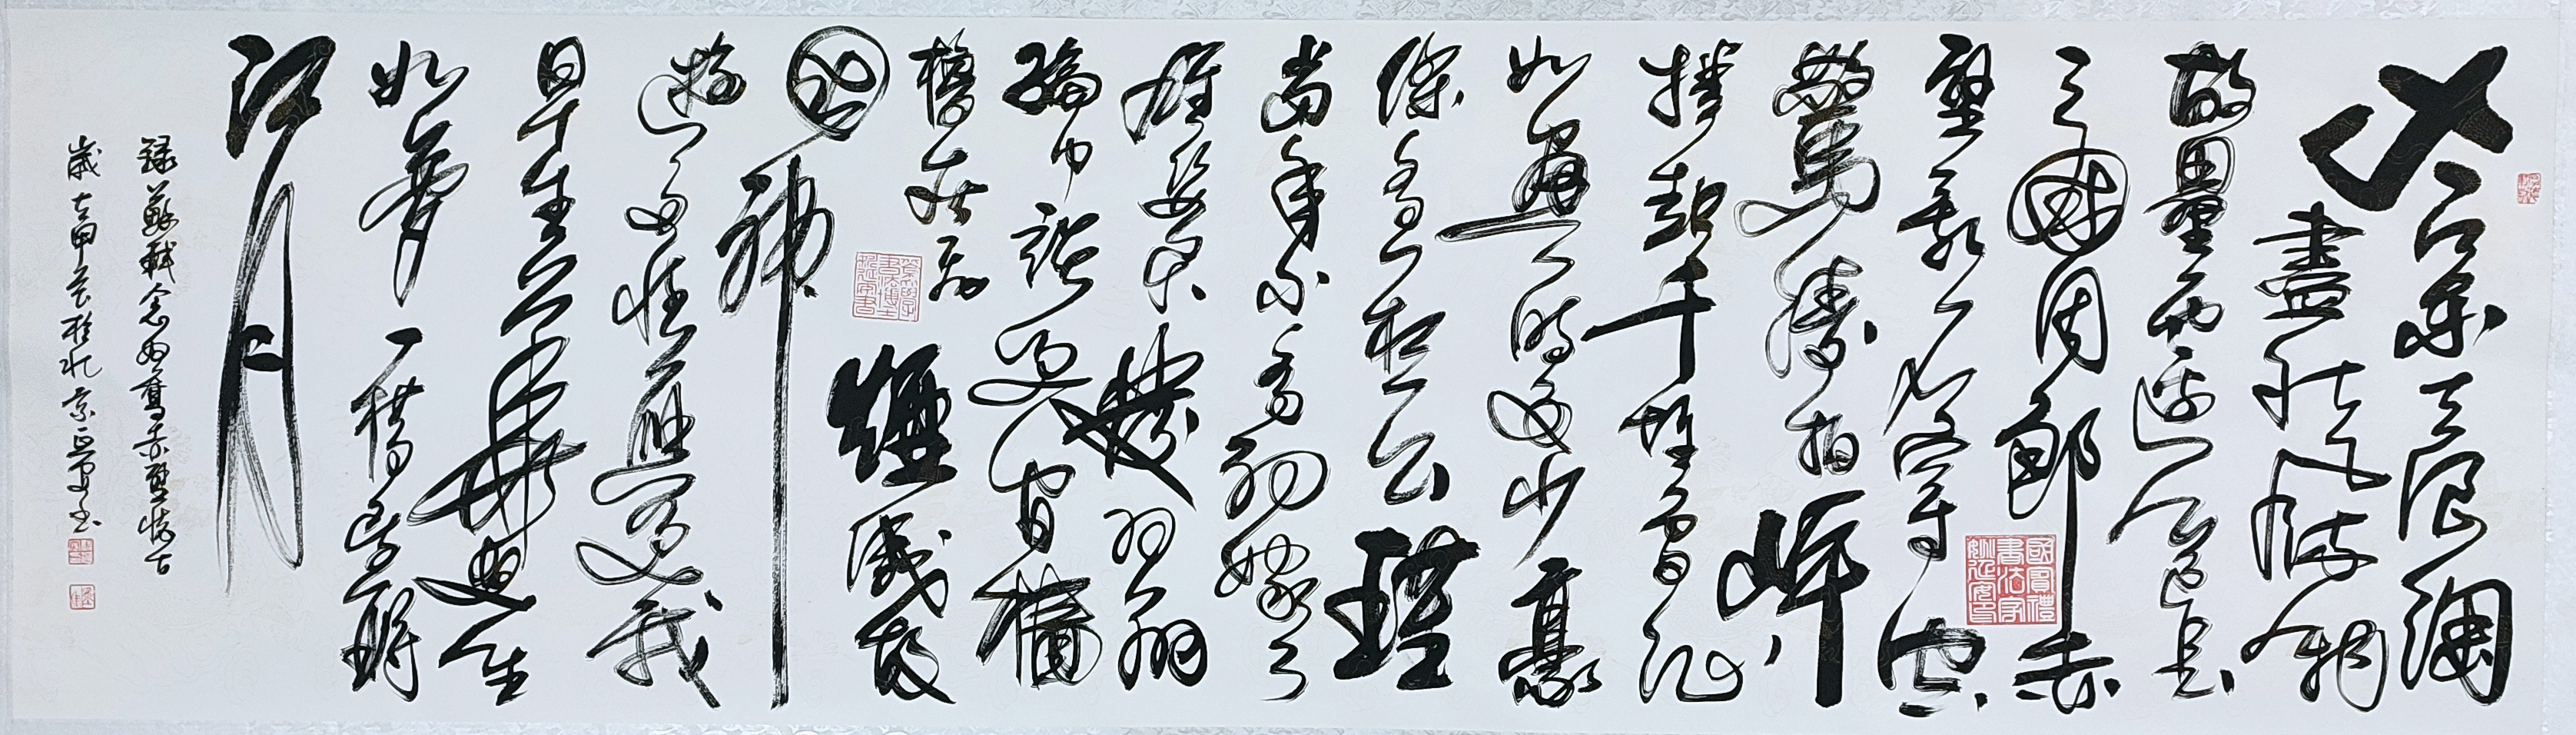 大江東去浪淘
盡千古風流人物
故壘西邊人道是
三國周郎赤
壁亂石穿空
驚濤拍岸
捲起千堆雪江山
如畫一時多少豪
傑遙想公瑾
當年小喬初嫁了
雄姿英發羽扇
綸巾談笑間檣
櫓灰飛煙滅故
國神
遊多情應笑我
早生華髮人生
如夢一樽還酹
江月
錄蘇軾念奴嬌赤壁懷古
歲在甲辰於北京延安书